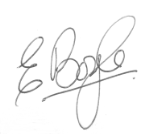 E Boyle